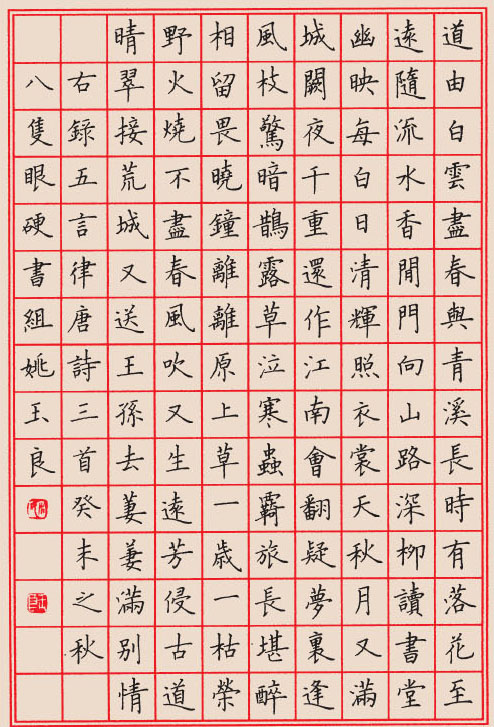 道由白雲盡春與青溪長時有落花至
遠隨流水香閒門向山路深柳讀書堂
幽映每白日清輝照衣裳天秋月又滿
城闕夜千重還作江南會翻疑夢裏逢
風枝驚暗鵲露草泣寒蟲羈旅長堪醉
相留畏曉鐘離離原上草一歲一枯榮
野火燒不盡春風吹又生遠芳侵古道
晴翠接荒城又送王孫去萋萋滿別情
右錄五言律唐詩三首癸未之秋
八隻眼硬書組姚玉良